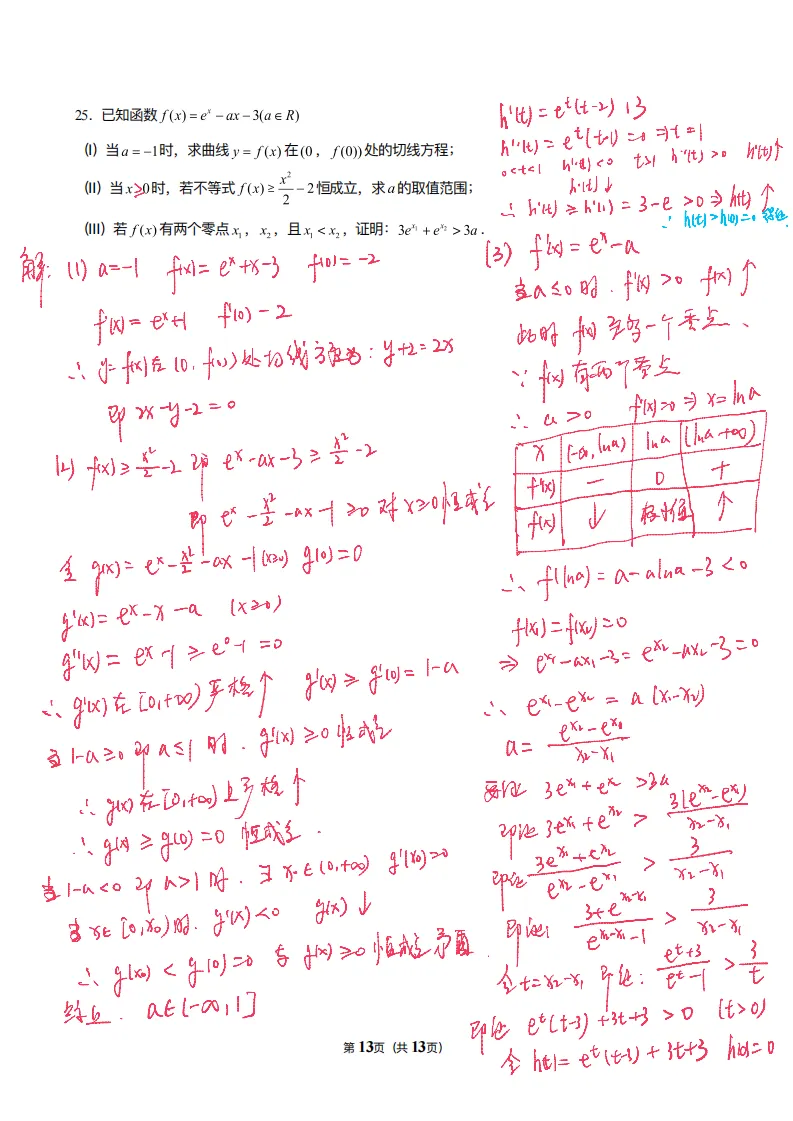 25. 已知函数 f(x) = e^x − ax − 3(a ∈ R)
(I) 当 a = −1 时，求曲线 y = f(x) 在 (0 , f(0)) 处的切线方程；
(II) 当 x≥0 时，若不等式 f(x) ≥ x²/2 − 2 恒成立，求 a 的取值范围；
(III) 若 f(x) 有两个零点 x₁，x₂，且 x₁ < x₂，证明：3e^{x₁} + e^{x₂} > 3a .
解: (1) a=-1 f(x)= e^x+x-3 f(0)=-2
f'(x)= e^x+1 f'(0)-2
∴ y=f(x)在(0, f(0))处切线方程为: y+2=2x
即 2x-y-2=0
(2) f(x)≥x²/2-2 即 e^x-ax-3≥x²/2-2
即 e^x-x²/2-ax-1≥0 对x≥0恒成立
令 g(x)= e^x-x²/2-ax-1(x≥0) g(0)=0
g'(x)= e^x-x-a (x≥0)
g''(x)= e^x-1≥e^0-1=0
∴ g'(x)在[0,+∞)严格↑ g'(x)≥g'(0)=1-a
当1-a≥0即a≤1时. g'(x)≥0恒成立
∴ g(x)在[0,+∞)上严格↑
∴ g(x)≥g(0)=0 恒成立.
当1-a<0即a>1时. ∃x₀∈(0,+∞) g'(x₀)=0
当x∈[0,x₀)时. g'(x)<0 g(x)↓
∴ g(x₀)<g(0)=0 与g(x)≥0恒成立矛盾.
综上. a∈(-∞,1]
h'(t)=e^t(t-2)+3
h''(t)=e^t(t-1)=0⇒t=1
0<t<1 h''(t)<0 t>1 h''(t)>0 h'(t)↑
h'(t)↓
∴ h'(t)≥h'(1)=3-e>0⇒h(t)↑
∴ h(t)>h(0)=0 得证
(3) f'(x)=e^x-a
当a≤0时. f'(x)>0 f(x)↑
此时 f(x)至多一个零点、
∵ f(x)有两个零点
∴ a>0 f'(x)=0⇒x=lna
x (-∞,lna) lna (lna,+∞)
f'(x) - 0 +
f(x) ↓ 极小值 ↑
∴ f(lna)=a-alna-3<0
f(x₁)=f(x₂)=0
⇒ e^{x₁}-ax₁-3=e^{x₂}-ax₂-3=0
∴ e^{x₁}-e^{x₂}=a(x₁-x₂)
a=(e^{x₂}-e^{x₁})/(x₂-x₁)
要证 3e^{x₁}+e^{x₂}>3a
即证3e^{x₁}+e^{x₂}>3(e^{x₂}-e^{x₁})/(x₂-x₁)
即证(3e^{x₁}+e^{x₂})/(e^{x₂}-e^{x₁})>3/(x₂-x₁)
即证: (3+e^{x₂-x₁})/(e^{x₂-x₁}-1)>3/(x₂-x₁)
令t=x₂-x₁ 即证: (e^t+3)/(e^t-1)>3/t
即证 e^t(t-3)+3t+3>0 (t>0)
令 h(t)=e^t(t-3)+3t+3 h(0)=0
第 13页 (共 13页)